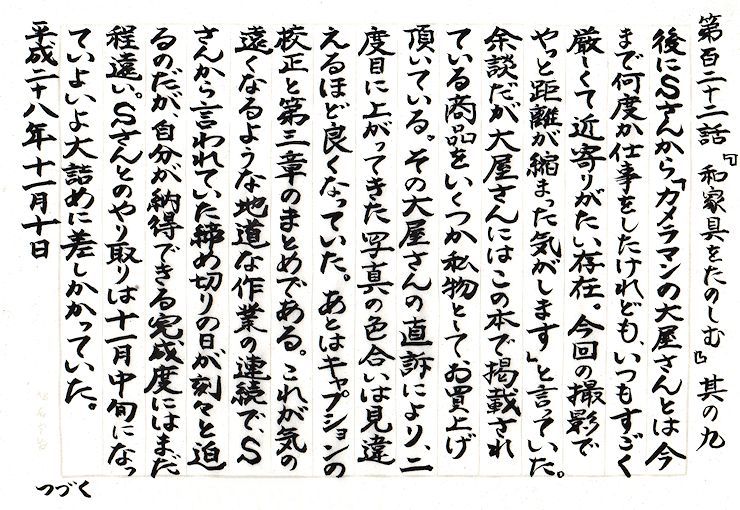 第百二十二話『和家具をたのしむ』其の九
後にSさんから「カメラマンの大屋さんとは今
まで何度か仕事をしたけれども、いつもすごく
厳しくて近寄りがたい存在。今回の撮影で
やっと距離が縮まった気がします」と言っていた。
余談だが大屋さんにはこの本で掲載され
ている商品をいくつか私物としてお買上げ
頂いている。その大屋さんの直訴により、二
度目に上がってきた写真の色合いは見違
えるほど良くなっていた。あとはキャプションの
校正と第三章のまとめである。これが気の
遠くなるような地道な作業の連続で、S
さんから言われていた締め切りの日が刻々と迫
るのだが、自分が納得できる完成度にはまだ
程遠い。Sさんとのやり取りは十一月中旬になっ
ていよいよ大詰めに差しかかっていた。
平成二十八年十一月十日
つづく